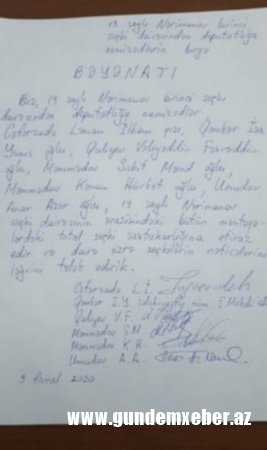 19 saylı Nərimanov birinci
seçki dairəsindən deputatlığa
namizədlərin birgə
BƏYANATI
Biz, 19 saylı Nərimanov birinci seçki
dairəsindən deputatlığa namizədlər
Cəfərzadə Ləman İlham qızı, Qəmbər İsa
Yunis oğlu, Quliyev Vəliyəddin Fəxrəddin
oğlu, Məmmədov Sahit Murad oğlu,
Məmmədov Kənan Hürbət oğlu, Umudov
Anar Azər oğlu, 19 saylı Nərimanov
seçki dairəsinin ərazisindəki bütün məntəqə-
lərdəki total seçki saxtakarlığına etiraz
edir və dairə üzrə seçkilərin nəticələrinin
ləğvini tələb edirik.
Cəfərzadə L.İ.
Qəmbər İ.Y.
Quliyev V.F.
Məmmədov S.M.
Məmmədov K.H.
Umudov A.A.
9 fevral 2020
www.gundemxeber.az